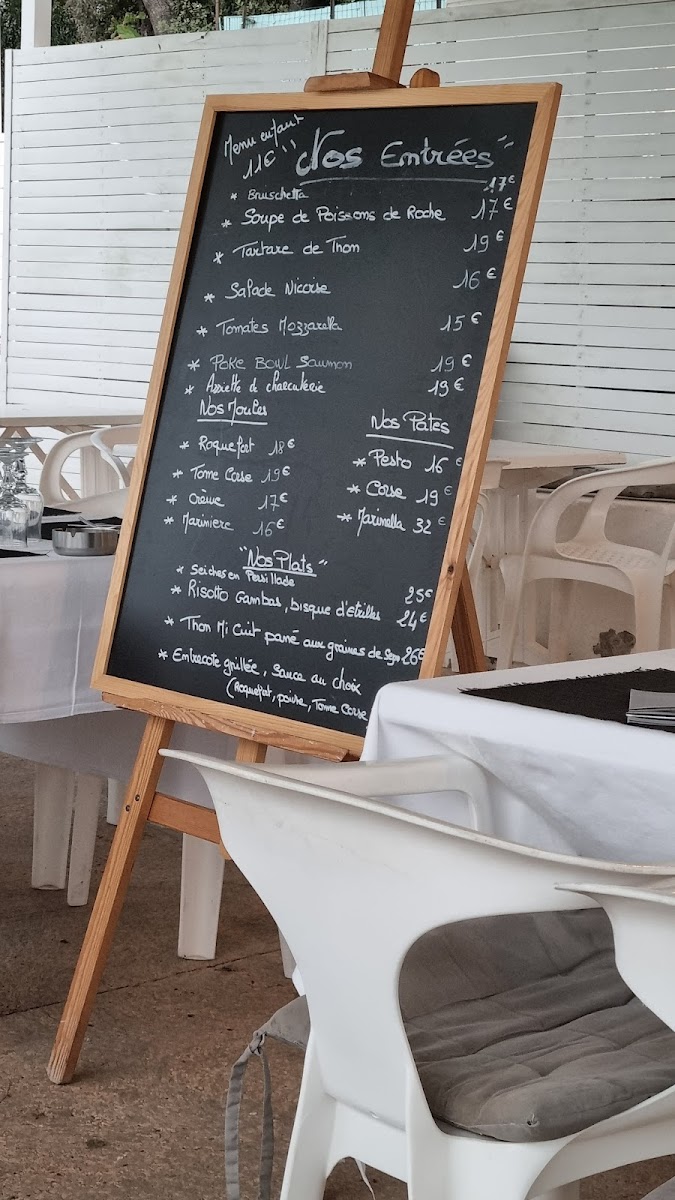 Menu enfant
11€
"Nos Entrées"
* Bruschetta 17€
* Soupe de Poissons de Roche 17€
* Tartare de Thon 19€
* Salade Nicoise 16€
* Tomates Mozzarella 15€
* POKE BOWL Saumon 19€
* Assiette de charcuterie 19€
Nos Moules
* Roquefort 18€
* Tome Corse 19€
* Crème 17€
* Mariniere 16€
Nos Pates
* Pesto 16€
* Corse 19€
* Marinella 32€
"Nos Plats"
* Seiches en Persillade 25€
* Risotto Gambas, bisque d'étrilles 24€
* Thon Mi Cuit pané aux graines de 26€
* Entrecote grillée, Sauce au choix
(Roquefort, poivre, Tomme Corse